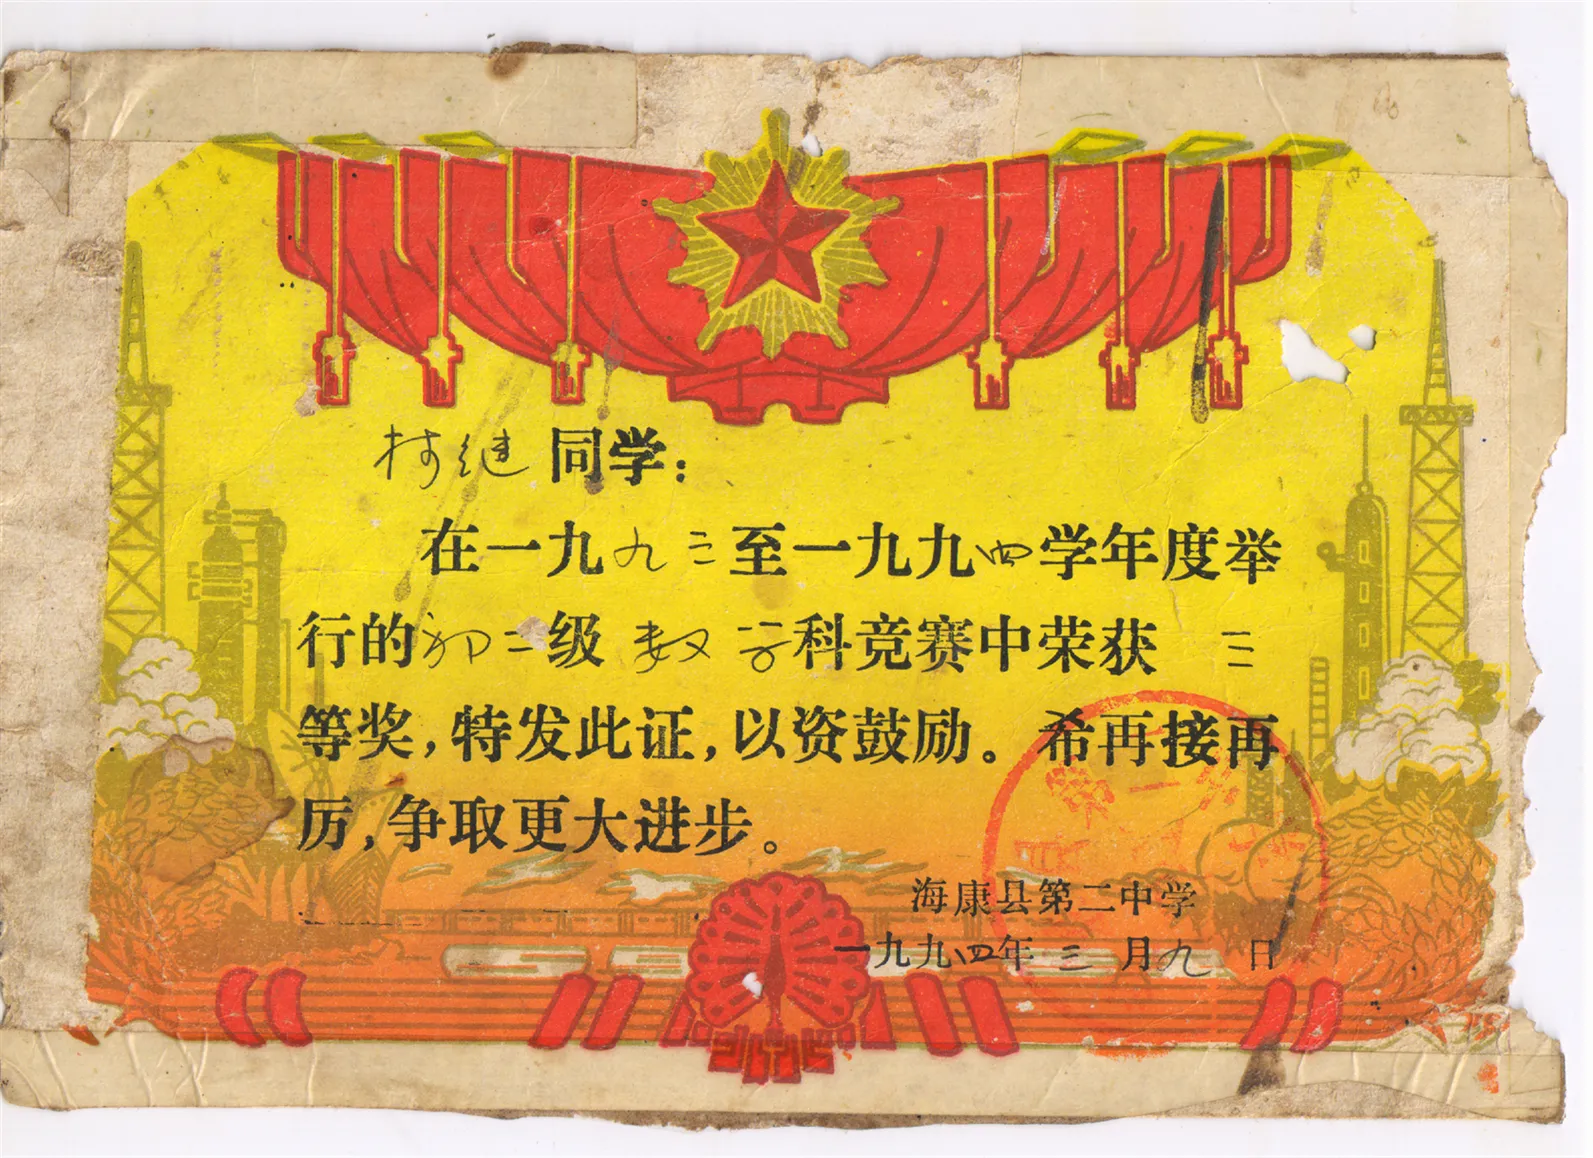 继同学：
在一九九三至一九九四学年度举
行的初二级数学科竞赛中荣获三
等奖，特发此证，以资鼓励。希再接再
厉，争取更大进步。
海康县第二中学
一九九四年三月九日